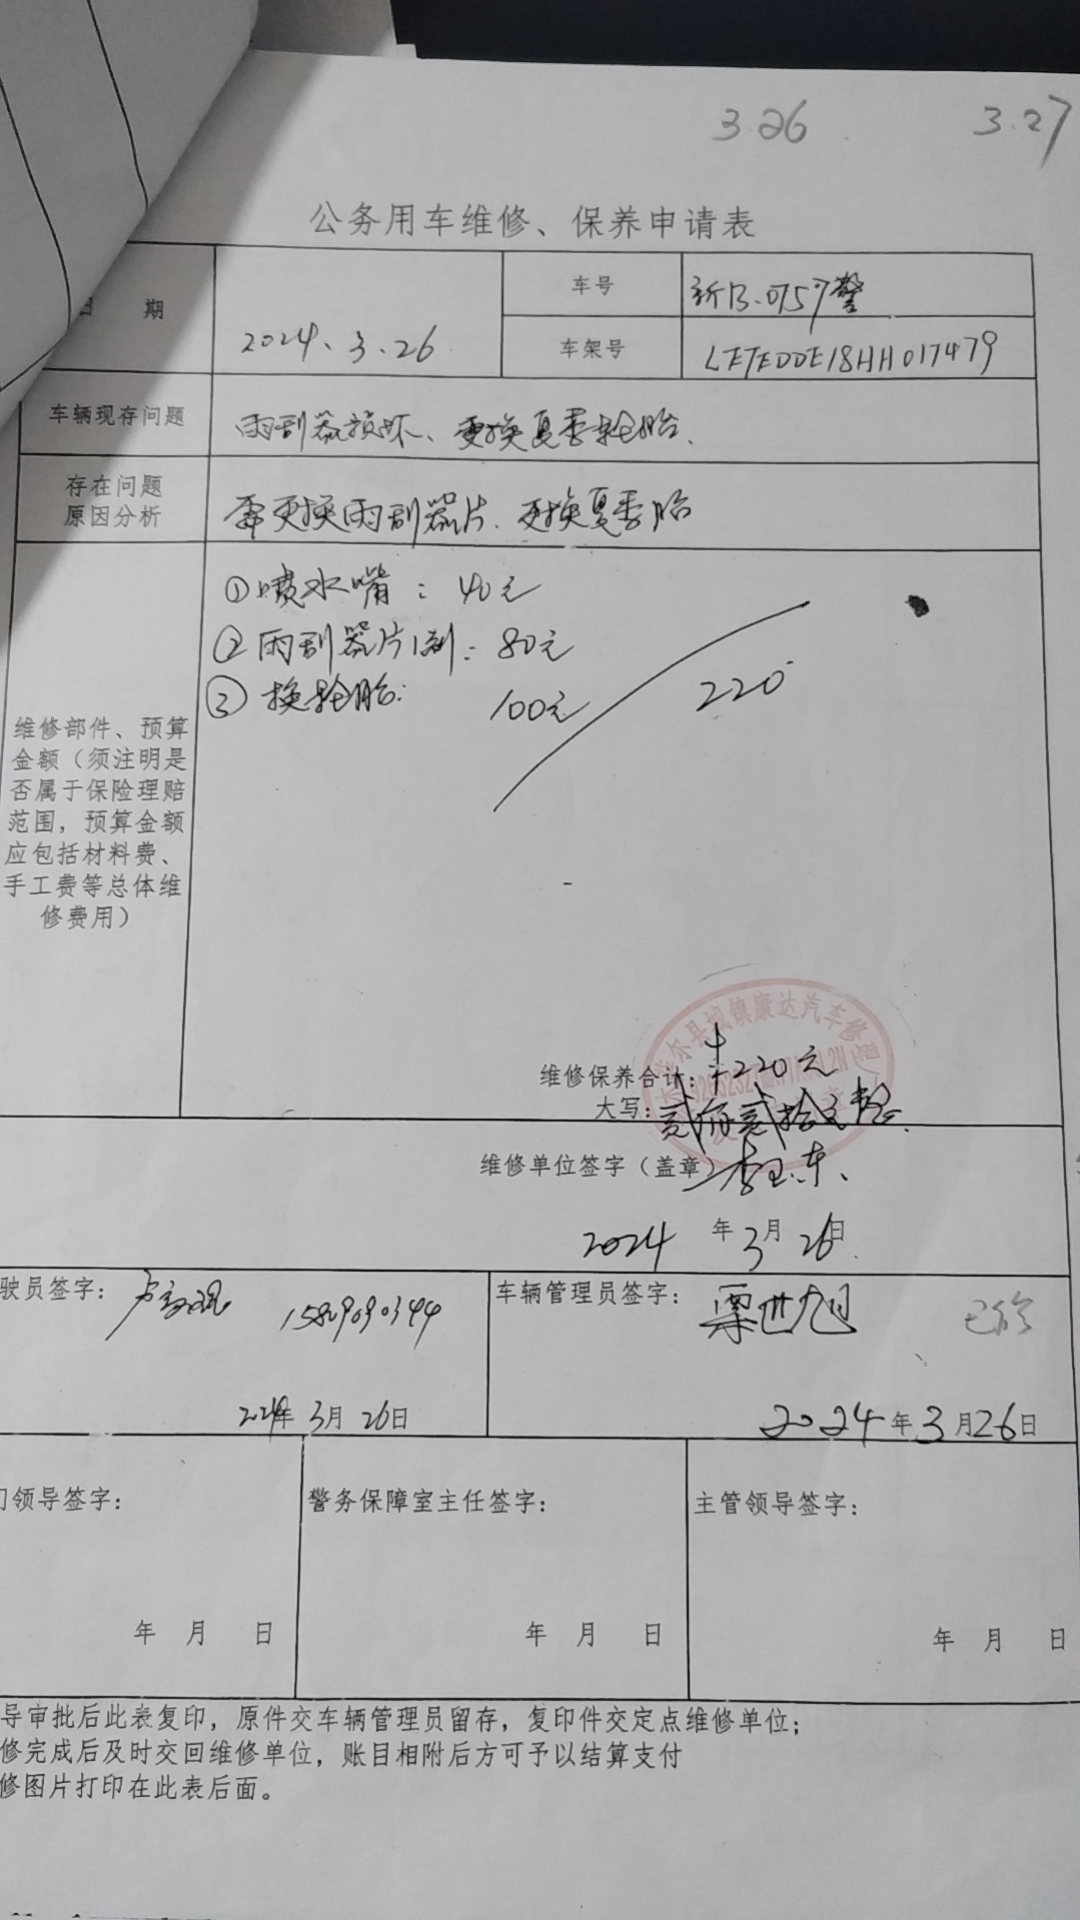 3.26 3.27
公务用车维修、保养申请表
日 期 2024.3.26 车号 新B.0757警
车架号 LETEDDE18HH017479
车辆现存问题 雨刮器损坏、更换夏季轮胎.
存在问题
原因分析 需更换雨刮器片.更换夏季胎
①喷水嘴:40元
②雨刮器片1副:80元
③换轮胎: 100元 220
维修部件、预算
金额(须注明是
否属于保险理赔
范围，预算金额
应包括材料费、
手工费等总体维
修费用)
维修保养合计: 220元
大写:贰佰贰拾元整.
维修单位签字(盖章)
2024年3月26日.
驶员签字: 15809090344 车辆管理员签字: 栗世旭 已修
2024年3月26日 2024年3月26日
领导签字: 警务保障室主任签字: 主管领导签字:
年 月 日 年 月 日 年 月 日
导审批后此表复印，原件交车辆管理员留存，复印件交定点维修单位;
修完成后及时交回维修单位，账目相附后方可予以结算支付
修图片打印在此表后面。